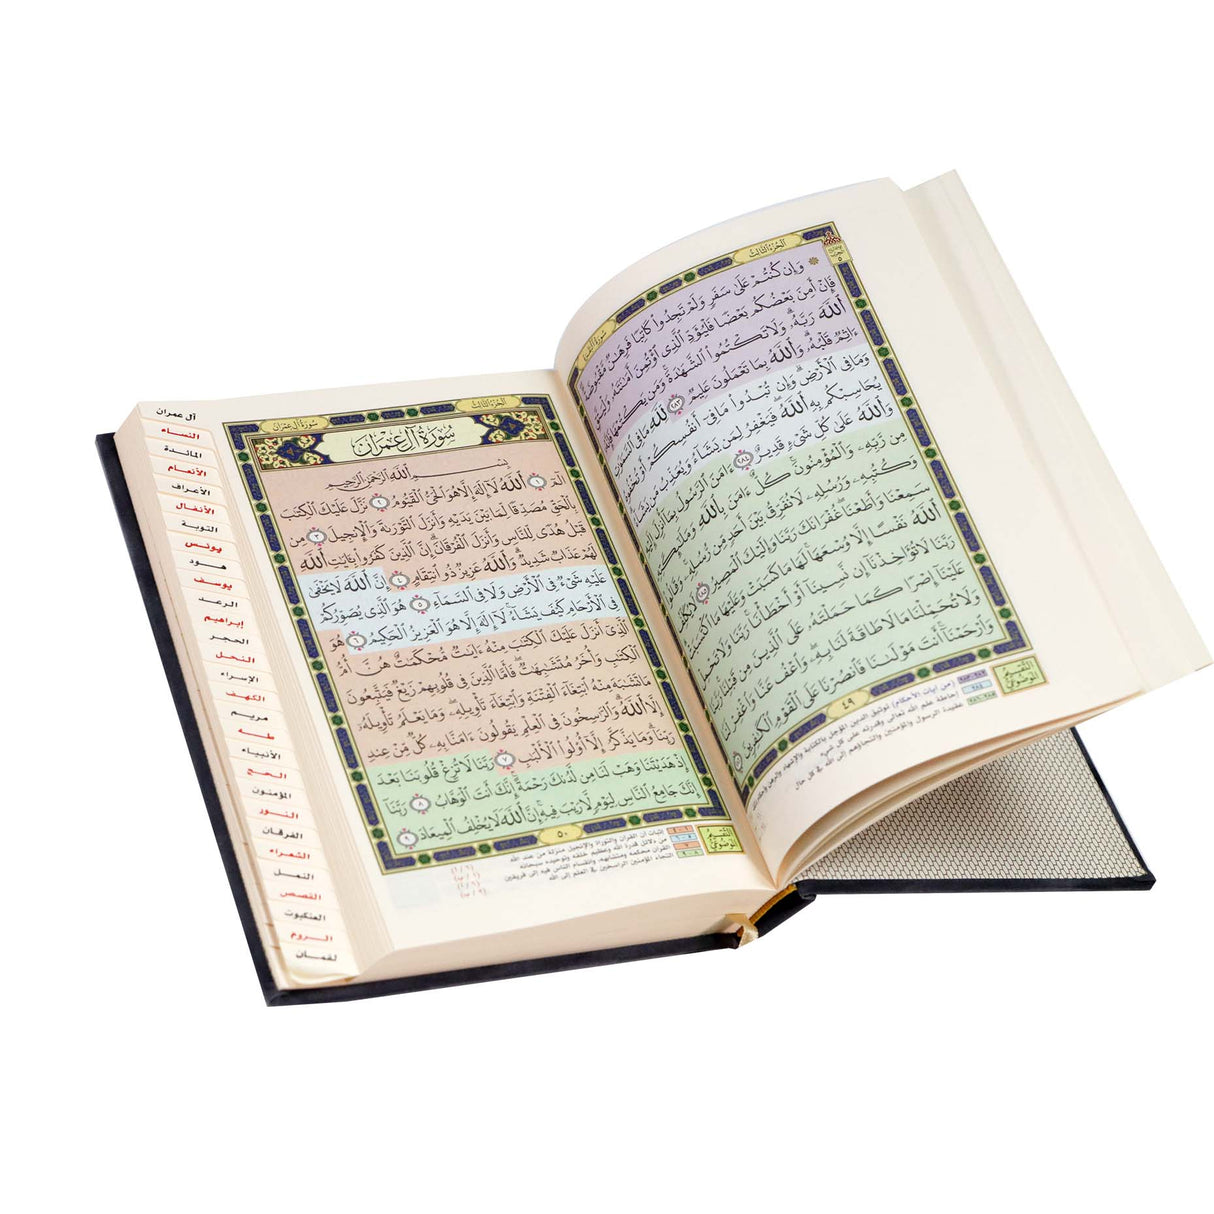 الجزء الثالث
سورة البقرة
۞ وَإِن كُنتُمْ عَلَىٰ سَفَرٍ وَلَمْ تَجِدُوا۟ كَاتِبًا فَرِهَٰنٌ مَّقْبُوضَةٌ
فَإِنْ أَمِنَ بَعْضُكُم بَعْضًا فَلْيُؤَدِّ ٱلَّذِى ٱؤْتُمِنَ أَمَٰنَتَهُۥ وَلْيَتَّقِ
ٱللَّهَ رَبَّهُۥ وَلَا تَكْتُمُوا۟ ٱلشَّهَٰدَةَ وَمَن يَكْتُمْهَا فَإِنَّهُۥٓ
ءَاثِمٌ قَلْبُهُۥ وَٱللَّهُ بِمَا تَعْمَلُونَ عَلِيمٌ ٢٨٣ لِّلَّهِ مَا فِى
وَمَا فِى ٱلْأَرْضِ وَإِن تُبْدُوا۟ مَا فِىٓ أَنفُسِكُمْ أَوْ
يُحَاسِبْكُم بِهِ ٱللَّهُ فَيَغْفِرُ لِمَن يَشَآءُ وَيُعَذِّبُ مَن يَشَآءُ
وَٱللَّهُ عَلَىٰ كُلِّ شَىْءٍ قَدِيرٌ ٢٨٤ ءَامَنَ ٱلرَّسُولُ بِمَآ أُنزِلَ
مِن رَّبِّهِۦ وَٱلْمُؤْمِنُونَ كُلٌّ ءَامَنَ بِٱللَّهِ وَمَلَٰٓئِكَتِهِۦ
وَكُتُبِهِۦ وَرُسُلِهِۦ لَا نُفَرِّقُ بَيْنَ أَحَدٍ مِّن رُّسُلِهِۦ وَقَالُوا۟
سَمِعْنَا وَأَطَعْنَا غُفْرَانَكَ رَبَّنَا وَإِلَيْكَ ٱلْمَصِيرُ ٢٨٥ لَا يُكَلِّفُ
ٱللَّهُ نَفْسًا إِلَّا وُسْعَهَا لَهَا مَا كَسَبَتْ وَعَلَيْهَا مَا ٱكْتَسَبَتْ
رَبَّنَا لَا تُؤَاخِذْنَآ إِن نَّسِينَآ أَوْ أَخْطَأْنَا رَبَّنَا وَلَا تَحْمِلْ
عَلَيْنَآ إِصْرًا كَمَا حَمَلْتَهُۥ عَلَى ٱلَّذِينَ مِن قَبْلِنَا رَبَّنَا
وَلَا تُحَمِّلْنَا مَا لَا طَاقَةَ لَنَا بِهِۦ وَٱعْفُ عَنَّا وَٱغْفِرْ لَنَا
وَٱرْحَمْنَآ أَنتَ مَوْلَىٰنَا فَٱنصُرْنَا عَلَى ٱلْقَوْمِ ٱلْكَٰفِرِينَ
٤٩
التقسيم الموضوعي
الجزء الثالث
سورة آل عمران
سُورَةُ آلِ عِمْرَان
بِسْمِ ٱللَّهِ ٱلرَّحْمَٰنِ ٱلرَّحِيمِ
الٓمٓ ١ ٱللَّهُ لَآ إِلَٰهَ إِلَّا هُوَ ٱلْحَىُّ ٱلْقَيُّومُ ٢ نَزَّلَ عَلَيْكَ ٱلْكِتَٰبَ
بِٱلْحَقِّ مُصَدِّقًا لِّمَا بَيْنَ يَدَيْهِ وَأَنزَلَ ٱلتَّوْرَىٰةَ وَٱلْإِنجِيلَ ٣ مِن
قَبْلُ هُدًى لِّلنَّاسِ وَأَنزَلَ ٱلْفُرْقَانَ إِنَّ ٱلَّذِينَ كَفَرُوا۟ بِـَٔايَٰتِ ٱللَّهِ
لَهُمْ عَذَابٌ شَدِيدٌ وَٱللَّهُ عَزِيزٌ ذُو ٱنتِقَامٍ ٤ إِنَّ ٱللَّهَ لَا يَخْفَىٰ
عَلَيْهِ شَىْءٌ فِى ٱلْأَرْضِ وَلَا فِى ٱلسَّمَآءِ ٥ هُوَ ٱلَّذِى يُصَوِّرُكُمْ
فِى ٱلْأَرْحَامِ كَيْفَ يَشَآءُ لَآ إِلَٰهَ إِلَّا هُوَ ٱلْعَزِيزُ ٱلْحَكِيمُ ٦ هُوَ
ٱلَّذِىٓ أَنزَلَ عَلَيْكَ ٱلْكِتَٰبَ مِنْهُ ءَايَٰتٌ مُّحْكَمَٰتٌ هُنَّ أُمُّ
ٱلْكِتَٰبِ وَأُخَرُ مُتَشَٰبِهَٰتٌ فَأَمَّا ٱلَّذِينَ فِى قُلُوبِهِمْ زَيْغٌ فَيَتَّبِعُونَ
مَا تَشَٰبَهَ مِنْهُ ٱبْتِغَآءَ ٱلْفِتْنَةِ وَٱبْتِغَآءَ تَأْوِيلِهِۦ وَمَا يَعْلَمُ تَأْوِيلَهُۥٓ
إِلَّا ٱللَّهُ وَٱلرَّٰسِخُونَ فِى ٱلْعِلْمِ يَقُولُونَ ءَامَنَّا بِهِۦ كُلٌّ مِّنْ عِندِ
رَبِّنَا وَمَا يَذَّكَّرُ إِلَّآ أُو۟لُوا۟ ٱلْأَلْبَٰبِ ٧ رَبَّنَا لَا تُزِغْ قُلُوبَنَا بَعْدَ
إِذْ هَدَيْتَنَا وَهَبْ لَنَا مِن لَّدُنكَ رَحْمَةً إِنَّكَ أَنتَ ٱلْوَهَّابُ ٨ رَبَّنَآ
إِنَّكَ جَامِعُ ٱلنَّاسِ لِيَوْمٍ لَّا رَيْبَ فِيهِ إِنَّ ٱللَّهَ لَا يُخْلِفُ ٱلْمِيعَادَ ٩
٥٠
التقسيم الموضوعي
إثبات أن القرآن والتوراة والإنجيل منزلة من عند الله
من دلائل قدرة الله وعظيم خلقه وتوحيده سبحانه
القرآن محكمه ومتشابهه، وانقسام الناس فيه إلى فريقين
التجاء المؤمنين الراسخين في العلم إلى الله
آل عمران
النساء
المائدة
الأنعام
الأعراف
الأنفال
التوبة
يونس
هود
يوسف
الرعد
إبراهيم
الحجر
النحل
الإسراء
الكهف
مريم
طه
الأنبياء
الحج
المؤمنون
النور
الفرقان
الشعراء
النمل
القصص
العنكبوت
الروم
لقمان